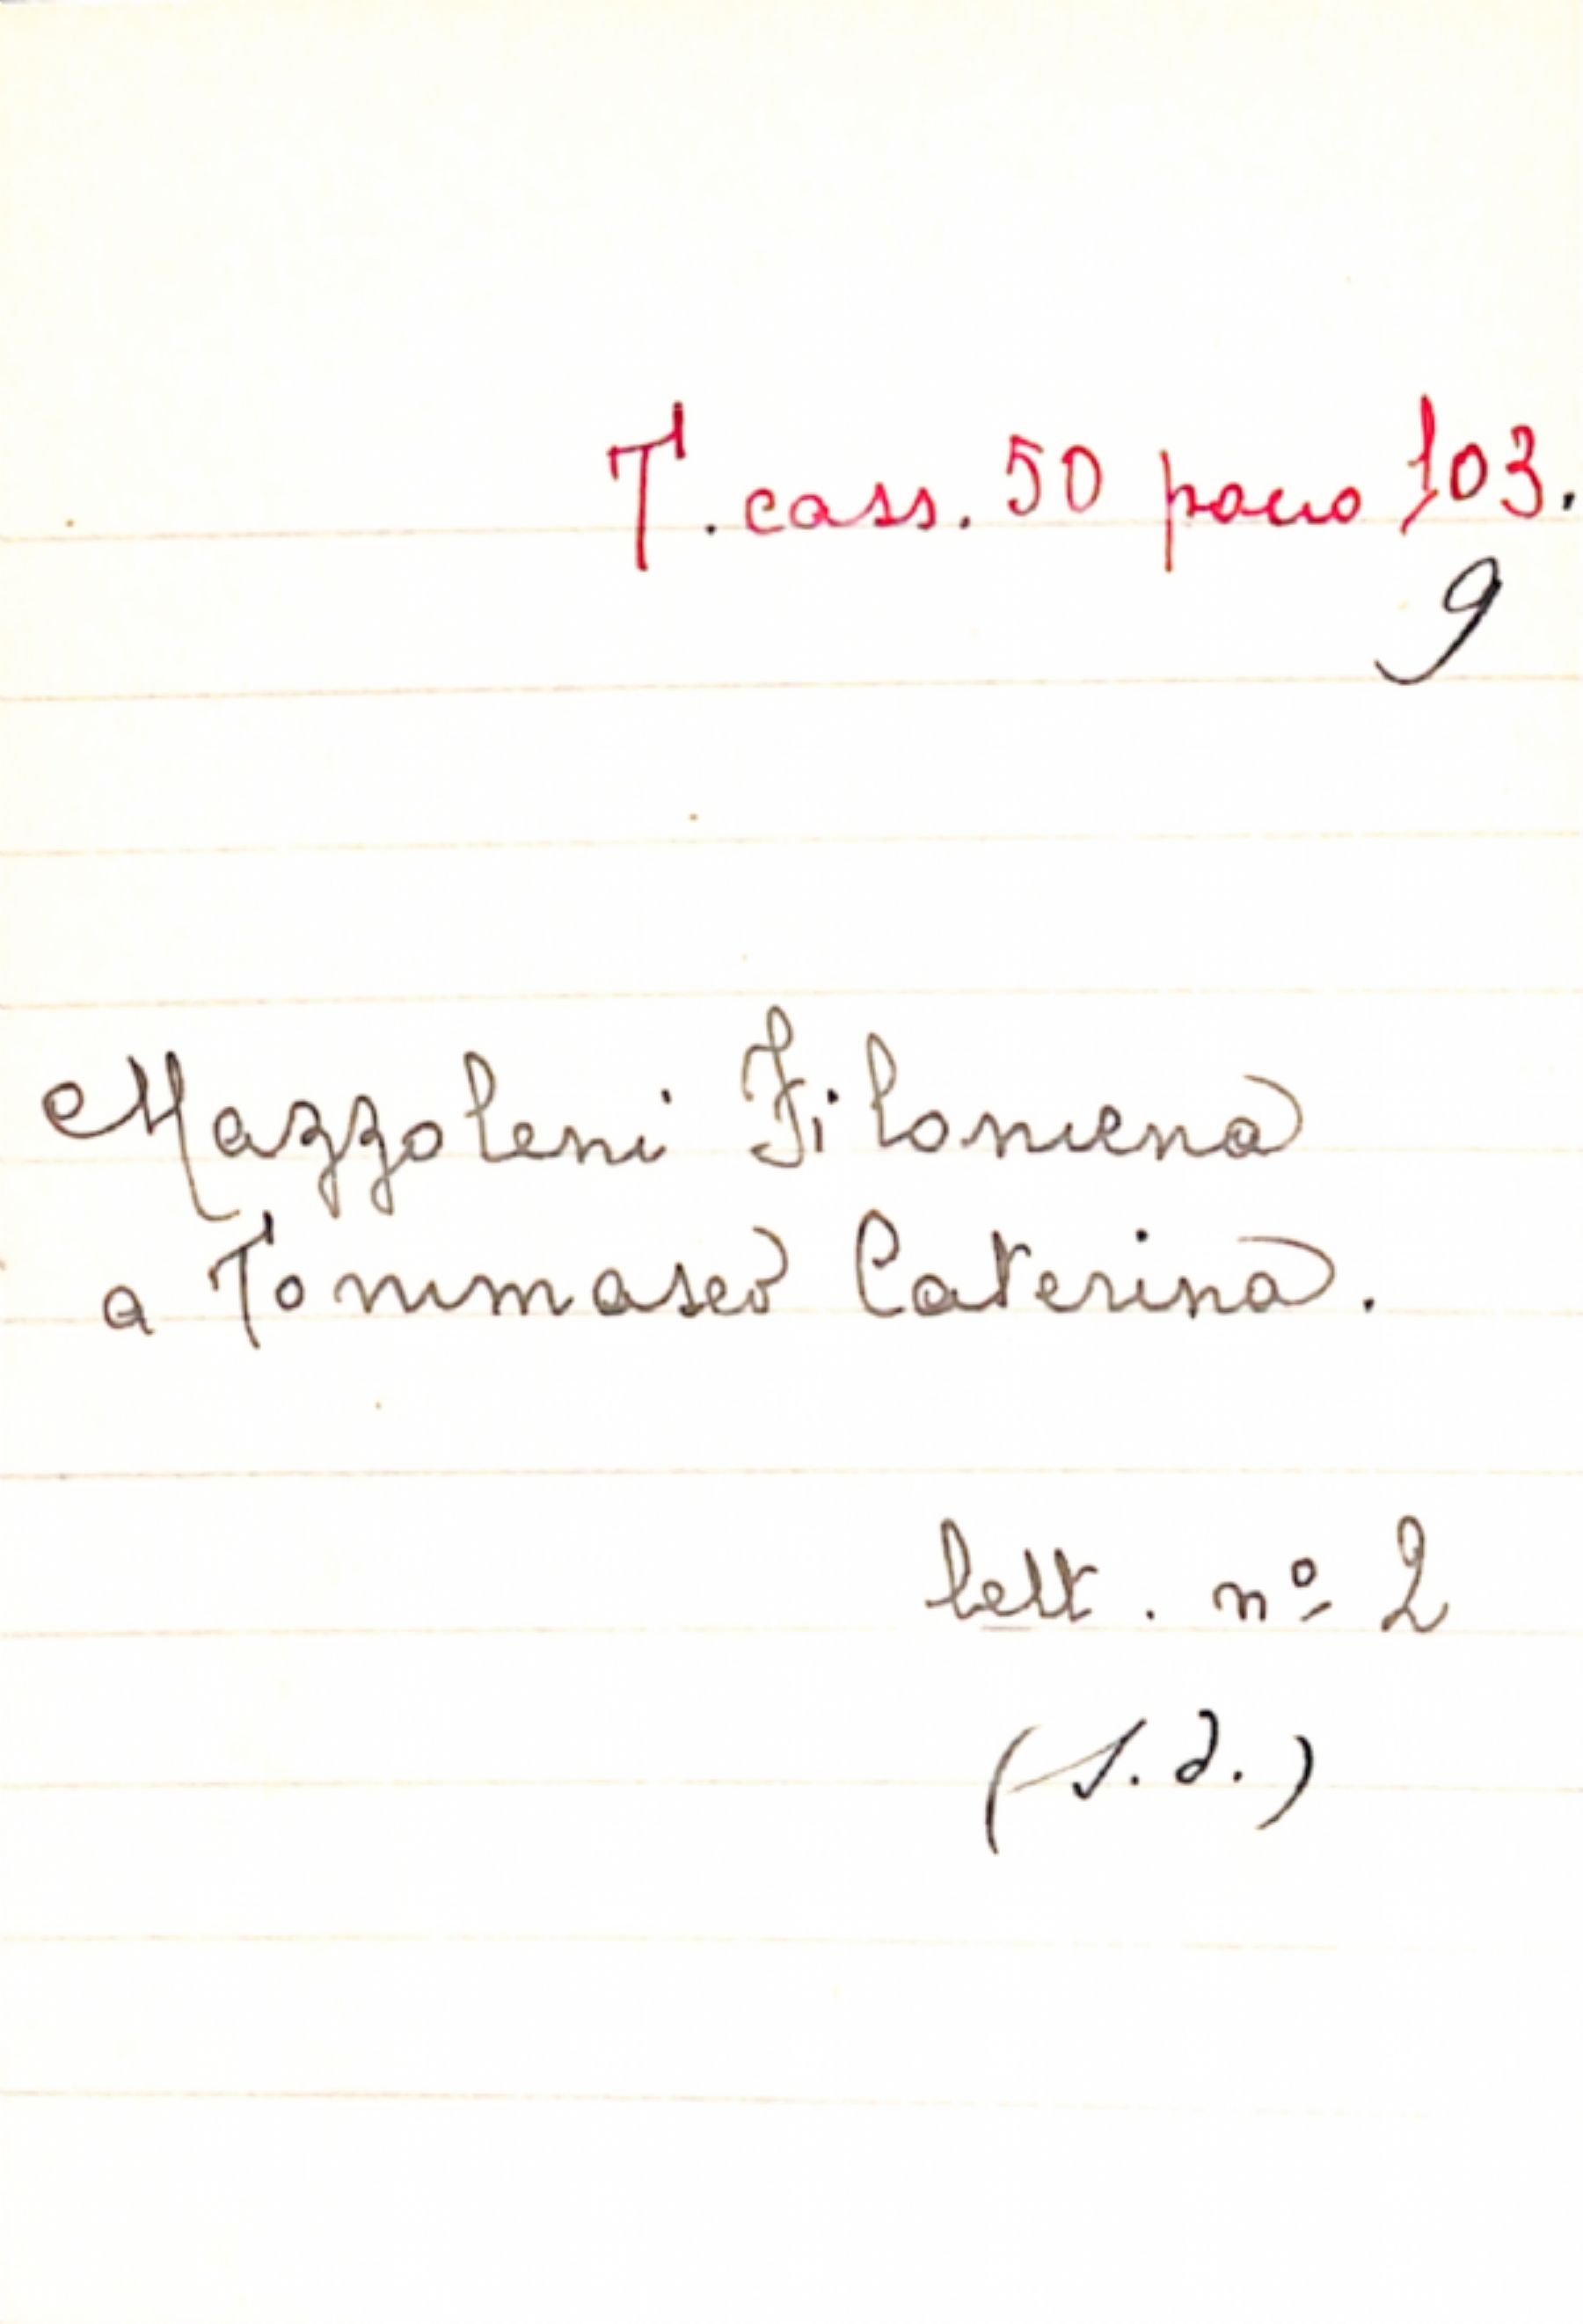 T. cass. 50 pacco 103.
9
Mazzoleni Filomena
a Tommaseo Caterina.
lett. nº 2
(s.d.)